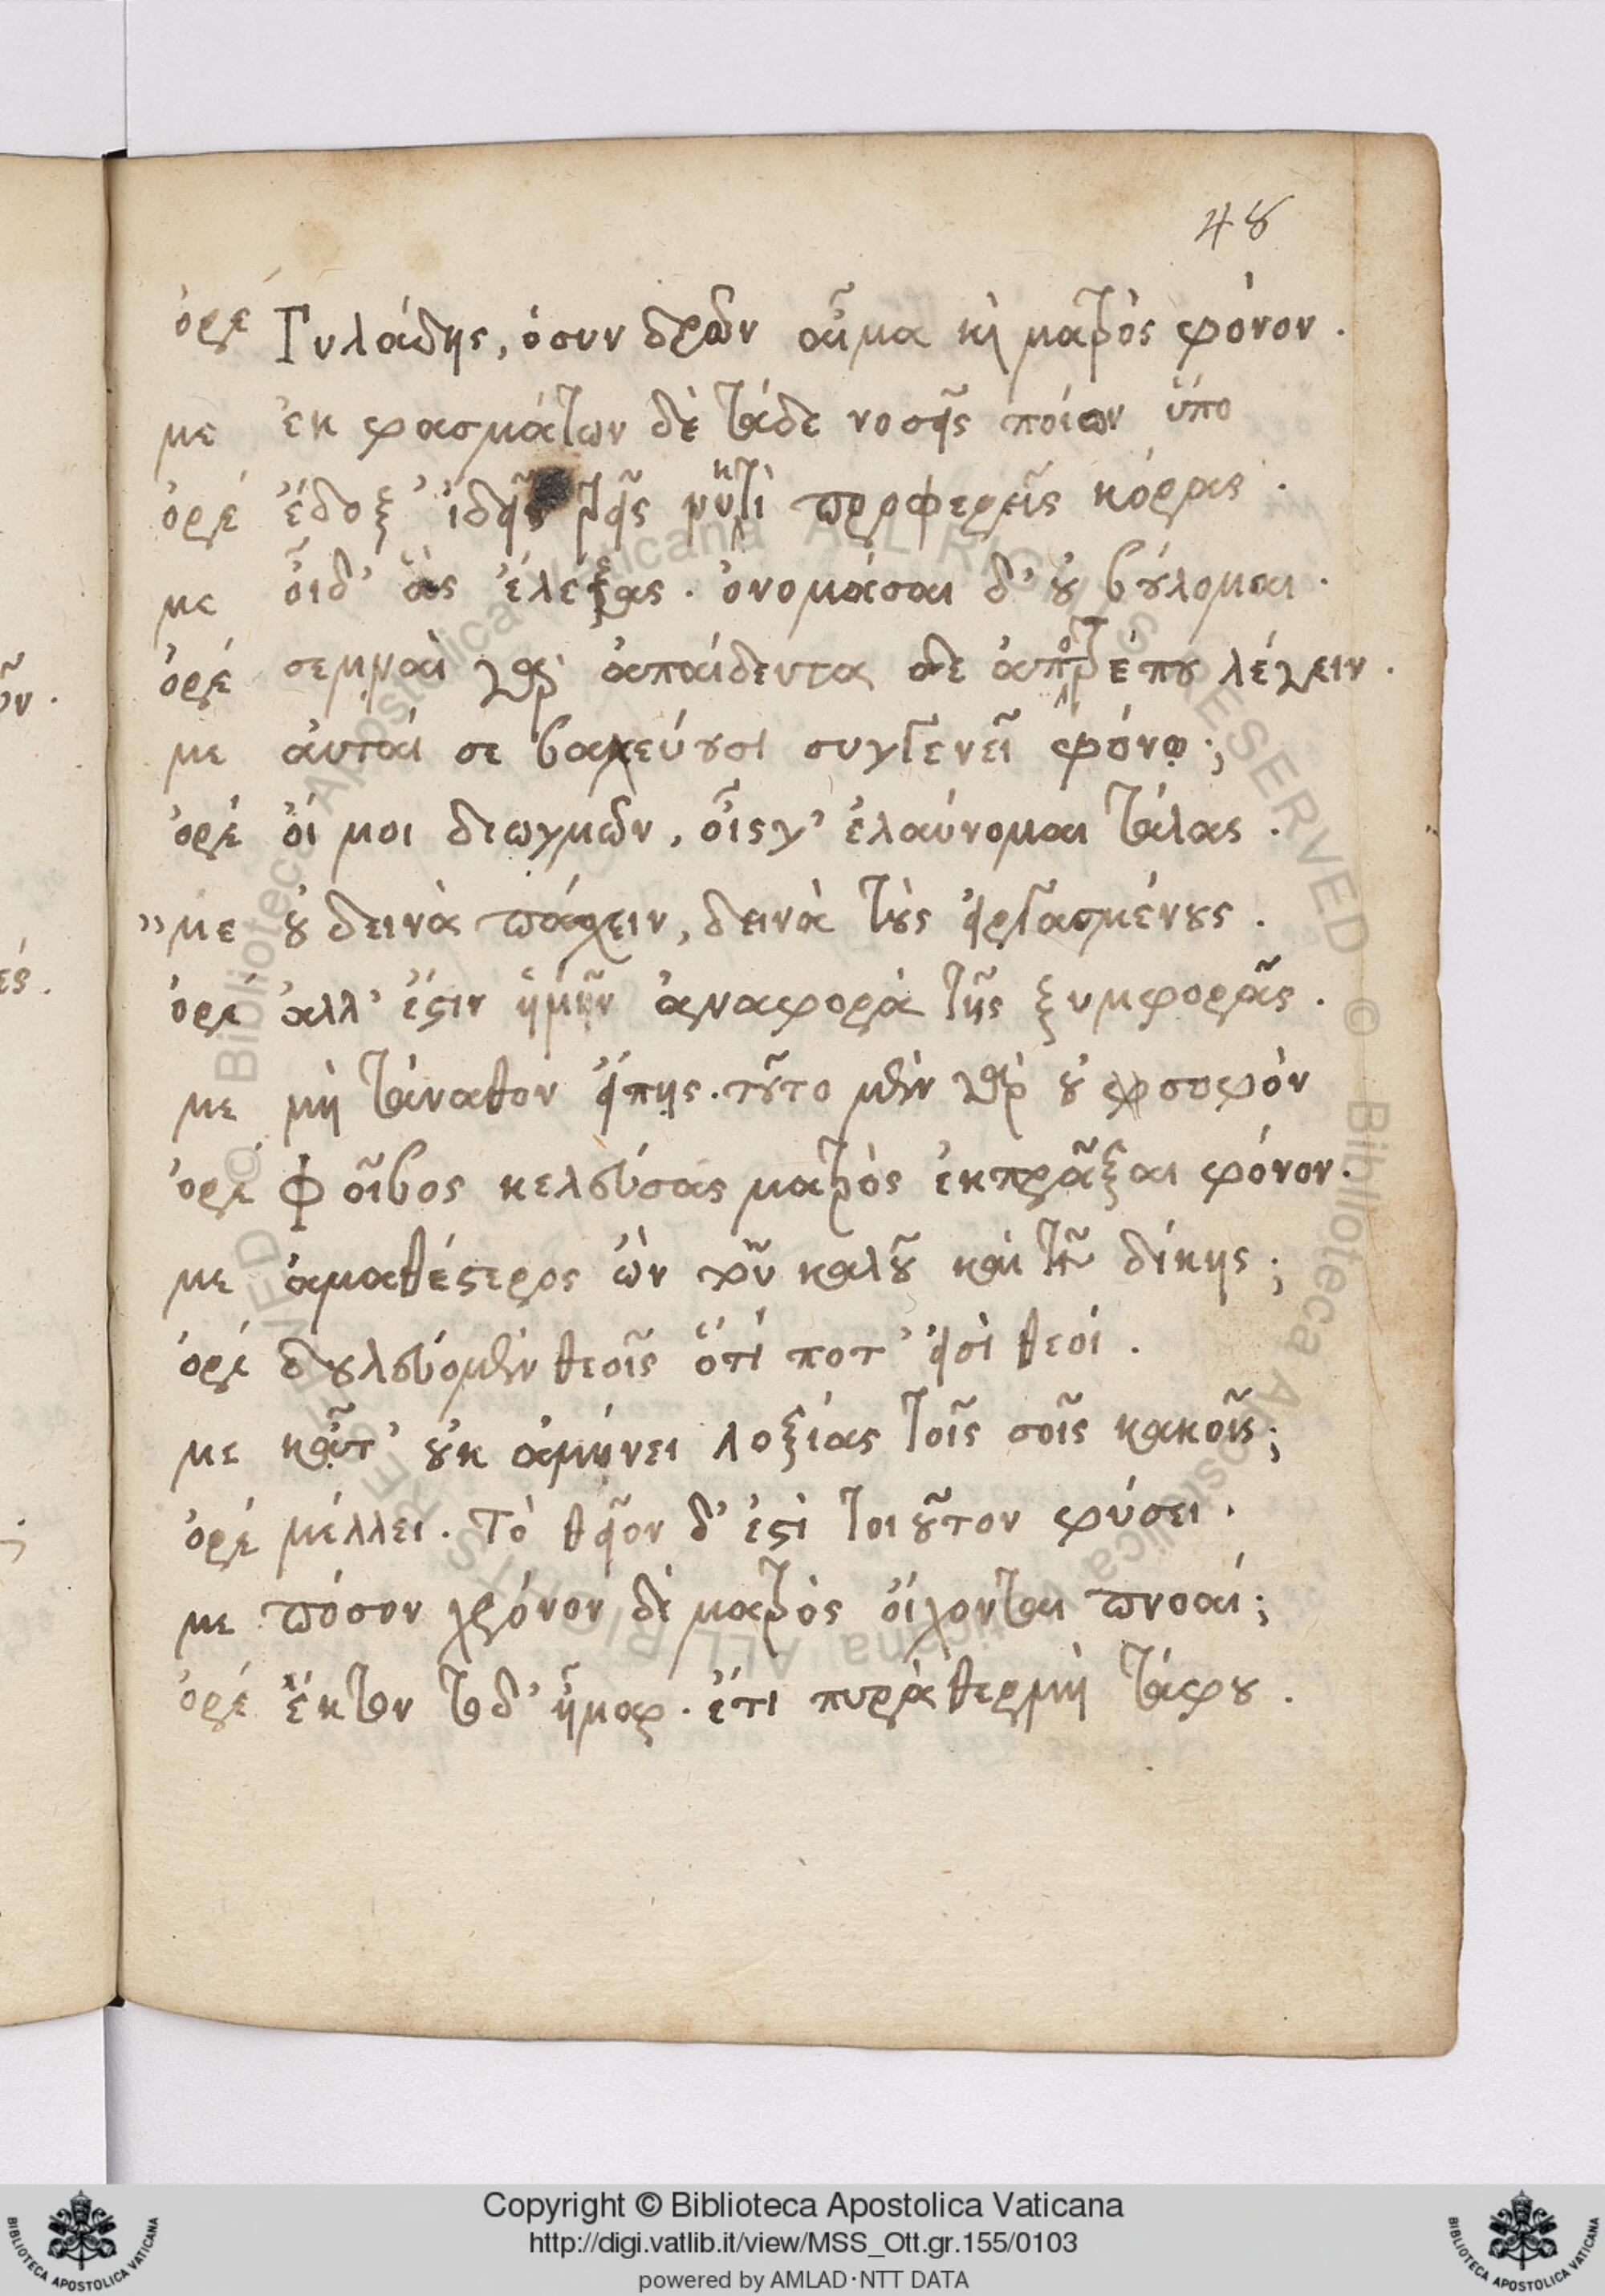 48
ὀρέ Γυλάδης, ὁ συν δρῶν αἷμα κὶ ματρὸς φόνον.
με ἐκ φασμάτων δὲ τάδε νοσεῖς ποίων ὕπο
ὀρέ ἔδοξ' ἰδεῖν τρεῖς νυκτὶ προφερεῖς κόρας.
με οἶδ' ἃς ἔλεξας. ὀνομάσαι δ' οὐ βούλομαι.
ὀρέ σεμναὶ γὰρ ἀπαίδευτα δε ἀποτρέπου λέγειν.
με ἁυταί σε βακχεύουσι συγγενεῖ φόνῳ;
ὀρέ ὄι μοι διωγμῶν, οἷς γ' ἐλαύνομαι τάλας.
" με οὐ δεινὰ πάσχειν, δεινὰ τοὺς εἰργασμένους.
ὀρέ ἀλλ' ἔστιν ἡμῖν ἀναφορὰ τῆς ξυμφορᾶς.
με μὴ θάνατον εἴπῃς. τοῦτο μὲν γὰρ οὐ σοφὸν
ὀρέ Φοῖβος κελεύσας ματρὸς ἐκπρᾶξαι φόνον.
με ἀμαθέστερος ὢν τοῦ καλοῦ καὶ τῆς δίκης;
ὀρέ δουλεύομεν θεοῖς ὅτί ποτ' εἰσὶ θεοί.
με κᾆτ' οὐκ ἀμύνει λοξίας τοῖς σοῖς κακοῖς;
ὀρέ μέλλει. Τὸ θεῖον δ' ἐστὶ τοιοῦτον φύσει.
με πόσον χρόνον δὲ ματρὸς ὄιχονται πνοαί;
ὀρέ ἕκτον τόδ' ἦμαρ. ἔτι πυρὰ θερμὴ τάφου.
Copyright © Biblioteca Apostolica Vaticana
http://digi.vatlib.it/view/MSS_Ott.gr.155/0103
powered by AMLAD·NTT DATA